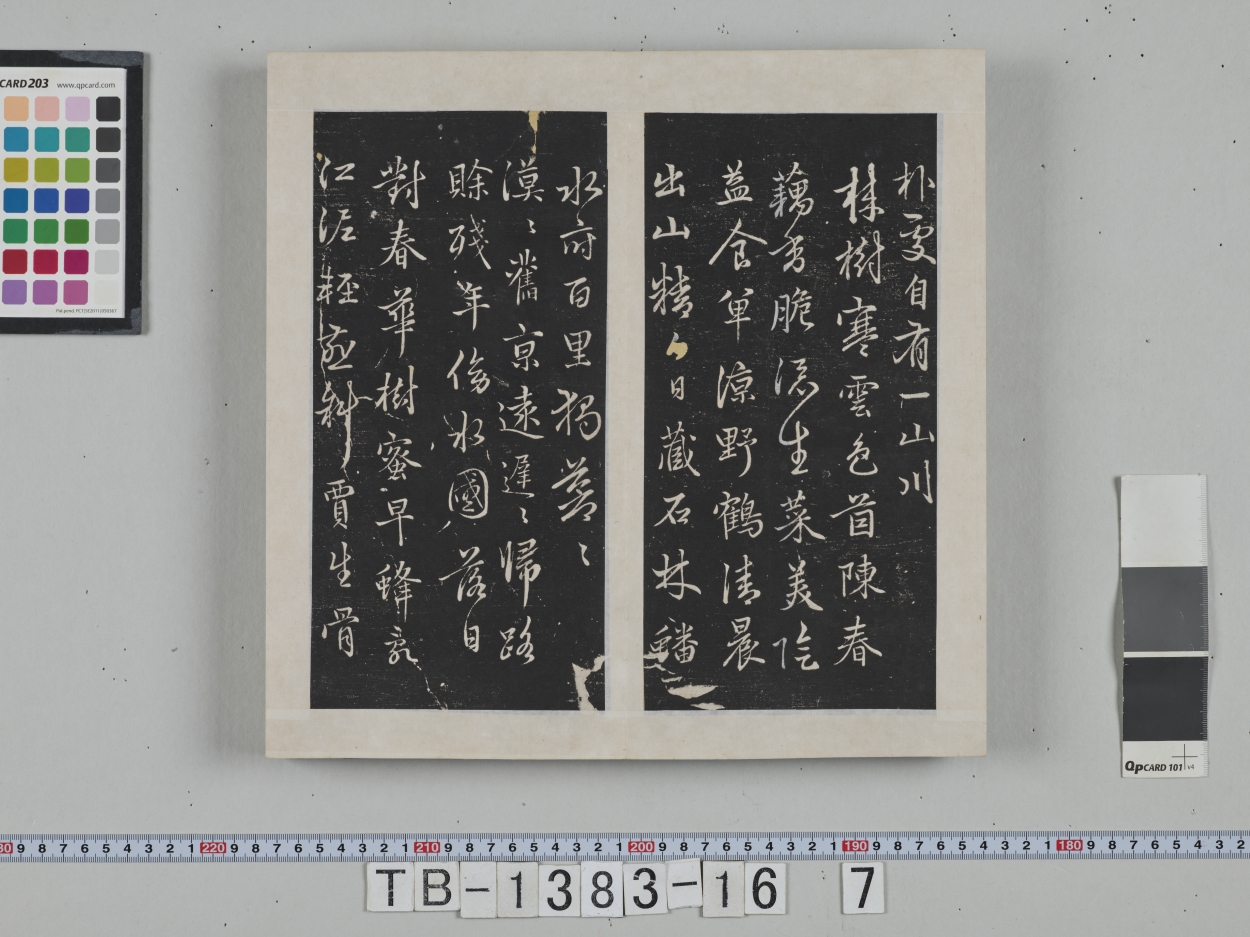 朴處自有一山川
棘樹寒雲色茵陳春
藕香脆添生菜美陰
益食單涼野鶴清晨
出山精白日藏石林蟠
水府百里獨蒼〻
漠〻舊京遠遲〻歸路
賒殘年傍水國落日
對春華樹蜜早蜂亂
江泥輕燕斜賈生骨
CARD 203 www.qpcard.com
QpCARD 101 v4
30 9 8 7 6 5 4 3 2 1 220 9 8 7 6 5 4 3 2 1 210 9 8 7 6 5 4 3 2 1 200 9 8 7 6 5 4 3 2 1 190 9 8 7 6 5 4 3 2 1 180 9 8 7 6 5 4 3 2
TB-1383-16 7